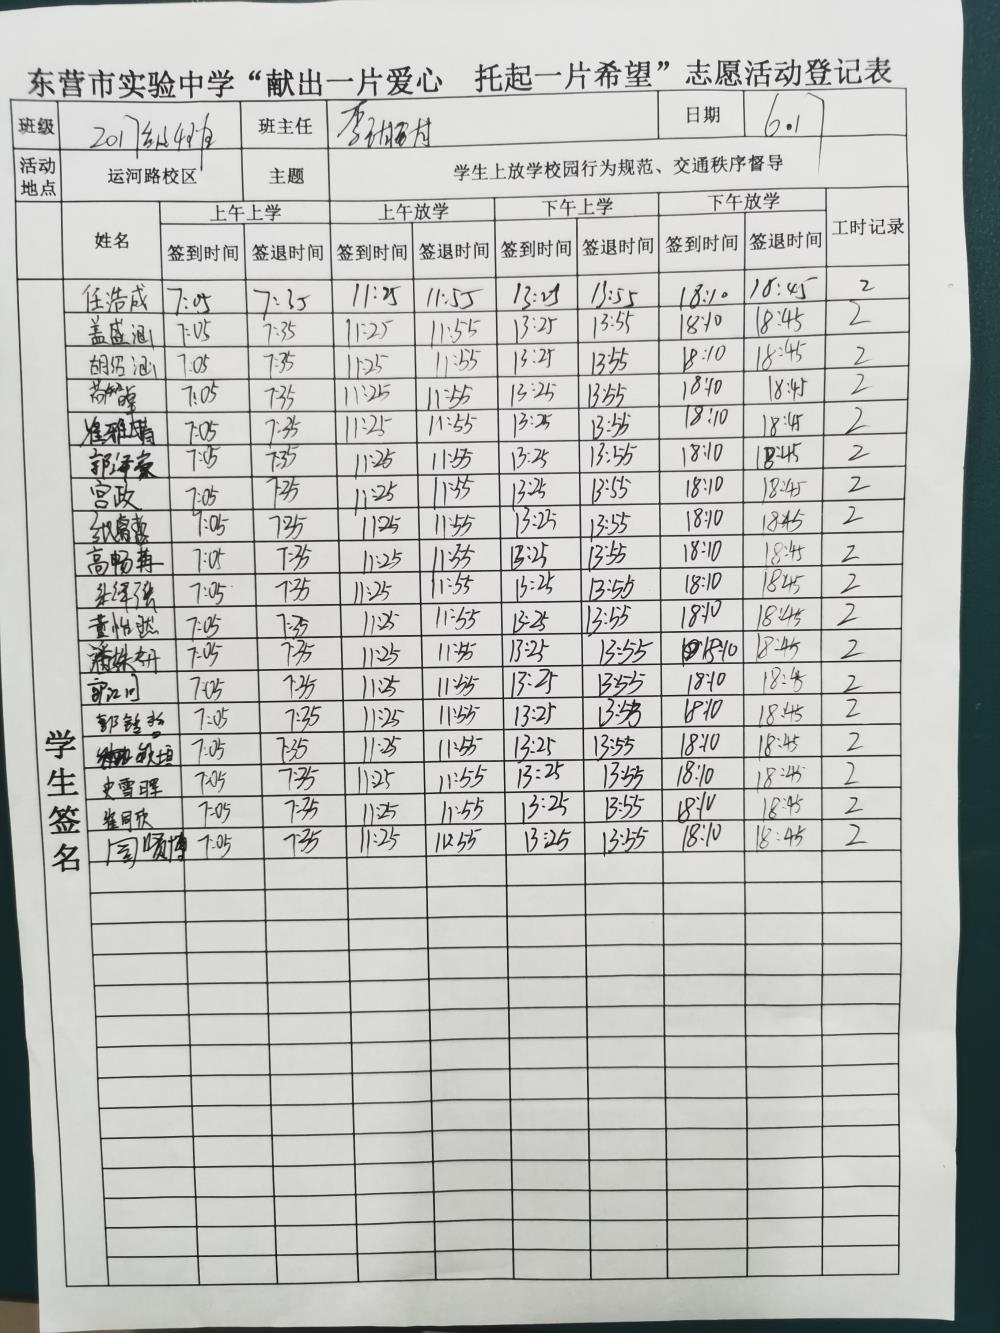 东营市实验中学“献出一片爱心 托起一片希望”志愿活动登记表
班级 2017级4班 班主任 李 日期 6.17
活动地点 运河路校区 主题 学生上放学校园行为规范、交通秩序督导
姓名 上午上学 上午放学 下午上学 下午放学 工时记录
签到时间 签退时间 签到时间 签退时间 签到时间 签退时间 签到时间 签退时间
学生签名
任浩成 7:05 7:35 11:25 11:55 13:25 13:55 18:10 18:45 2
盖盛涵 7:05 7:35 11:25 11:55 13:25 13:55 18:10 18:45 2
胡绍涵 7:05 7:35 11:25 11:55 13:25 13:55 18:10 18:45 2
7:05 7:35 11:25 11:55 13:25 13:55 18:10 18:45 2
崔雅晴 7:05 7:35 11:25 11:55 13:25 13:55 18:10 18:45 2
郭泽宸 7:05 7:35 11:25 11:55 13:25 13:55 18:10 18:45 2
宫政 7:05 7:35 11:25 11:55 13:25 13:55 18:10 18:45 2
7:05 7:35 11:25 11:55 13:25 13:55 18:10 18:45 2
高畅苒 7:05 7:35 11:25 11:55 13:25 13:55 18:10 18:45 2
7:05 7:35 11:25 11:55 13:25 13:55 18:10 18:45 2
董怡然 7:05 7:35 11:25 11:55 13:25 13:55 18:10 18:45 2
潘姝妍 7:05 7:35 11:25 11:55 13:25 13:55 18:10 18:45 2
7:05 7:35 11:25 11:55 13:25 13:55 18:10 18:45 2
郭 7:05 7:35 11:25 11:55 13:25 13:55 18:10 18:45 2
7:05 7:35 11:25 11:55 13:25 13:55 18:10 18:45 2
史雪晖 7:05 7:35 11:25 11:55 13:25 13:55 18:10 18:45 2
崔同欣 7:05 7:35 11:25 11:55 13:25 13:55 18:10 18:45 2
闫贤博 7:05 7:35 11:25 11:55 13:25 13:55 18:10 18:45 2